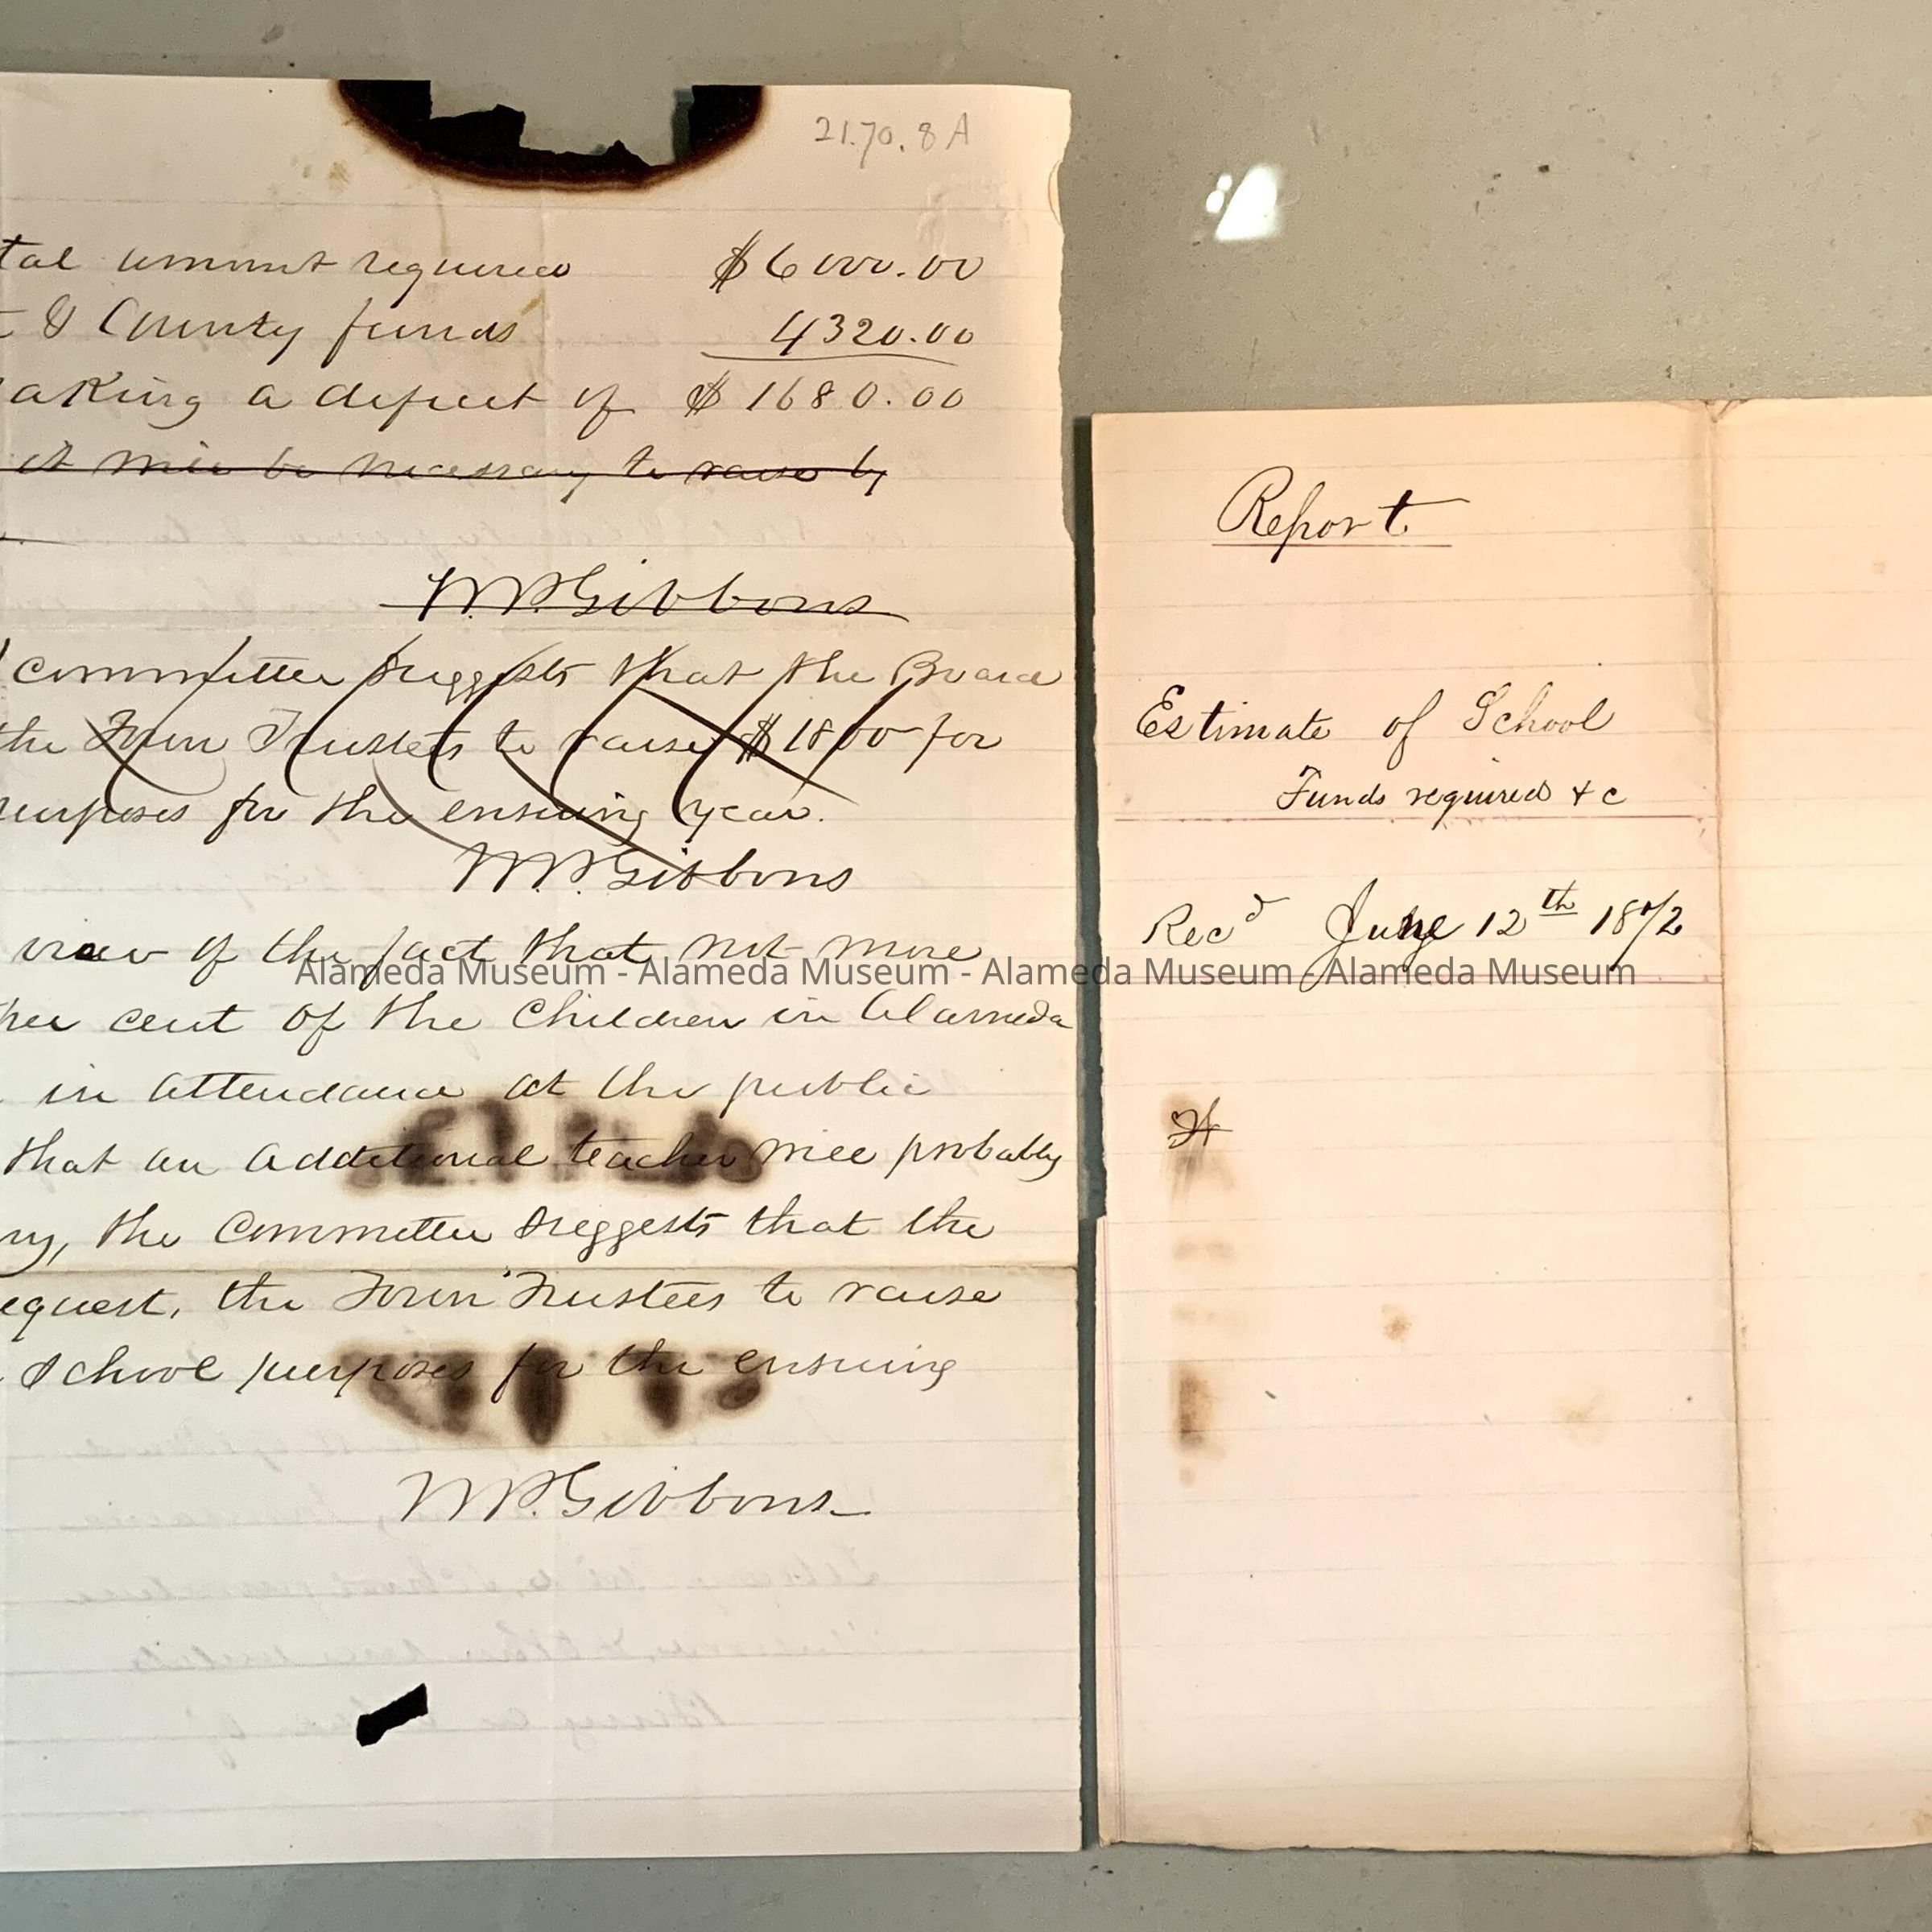 21.70.8 A
tal amount required $6000.00
& County funds 4320.00
aking a deficit of $1680.00
it will be necessary to raise by
W.P. Gibbons
committee suggests that the Board
the Town Trustees to raise $1800 for
purposes for the ensuing year.
W.P. Gibbons
view of the fact that not more
per cent of the children in Alameda
in attendance at the public
that an additional teacher will probably
ry, the Committee suggests that the
equest, the Town Trustees to raise
School purposes for the ensuing
W.P. Gibbons
Report
Estimate of School
Funds required & c
Recd 12th 1872
Alameda Museum - Alameda Museum - Alameda Museum - Alameda Museum